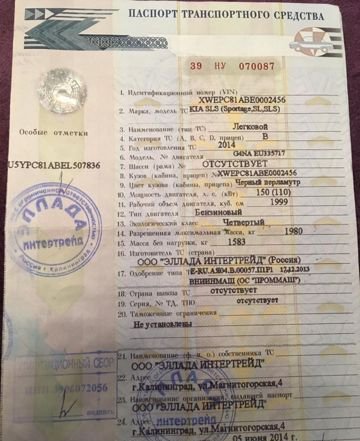 ПАСПОРТ ТРАНСПОРТНОГО СРЕДСТВА
39 НУ 070087
1. Идентификационный номер (VIN)
XWEPC81ABE0002456
2. Марка, модель ТС KIA SLS (Sportage,SL,SLS)
3. Наименование (тип ТС) Легковой
4. Категория ТС (A, B, C, D, прицеп) B
5. Год изготовления ТС 2014
6. Модель, № двигателя G4NA EU335717
7. Шасси (рама) № ОТСУТСТВУЕТ
8. Кузов (кабина, прицеп) № XWEPC81ABE0002456
9. Цвет кузова (кабины, прицепа) Черный перламутр
10. Мощность двигателя, л. с. (кВт) 150 (110)
11. Рабочий объем двигателя, куб. см 1999
12. Тип двигателя Бензиновый
13. Экологический класс Четвертый
14. Разрешенная максимальная масса, кг 1980
15. Масса без нагрузки, кг 1583
16. Изготовитель ТС (страна)
ООО "ЭЛЛАДА ИНТЕРТРЕЙД" (Россия)
17. Одобрение типа ТС № 17.12.2013
ВНИИНМАШ (ОС "ПРОММАШ")
18. Страна вывоза ТС отсутствует
19. Серия, № ТД, ТПО отсутствует
20. Таможенные ограничения
Не установлены
21. Наименование (ф. и. о.) собственника ТС
ООО "ЭЛЛАДА ИНТЕРТРЕЙД"
22. Адрес
г.Калининград, ул.Магнитогорская,4
23. Наименование организации, выдавшей паспорт
ООО "ЭЛЛАДА ИНТЕРТРЕЙД"
24. Адрес
г.Калининград, ул.Магнитогорская,4
05 июня 2014 г.
Особые отметки
U5YPC81ABEL507836
ЭЛЛАДА
ИНТЕРТРЕЙД
Россия г. Калининград